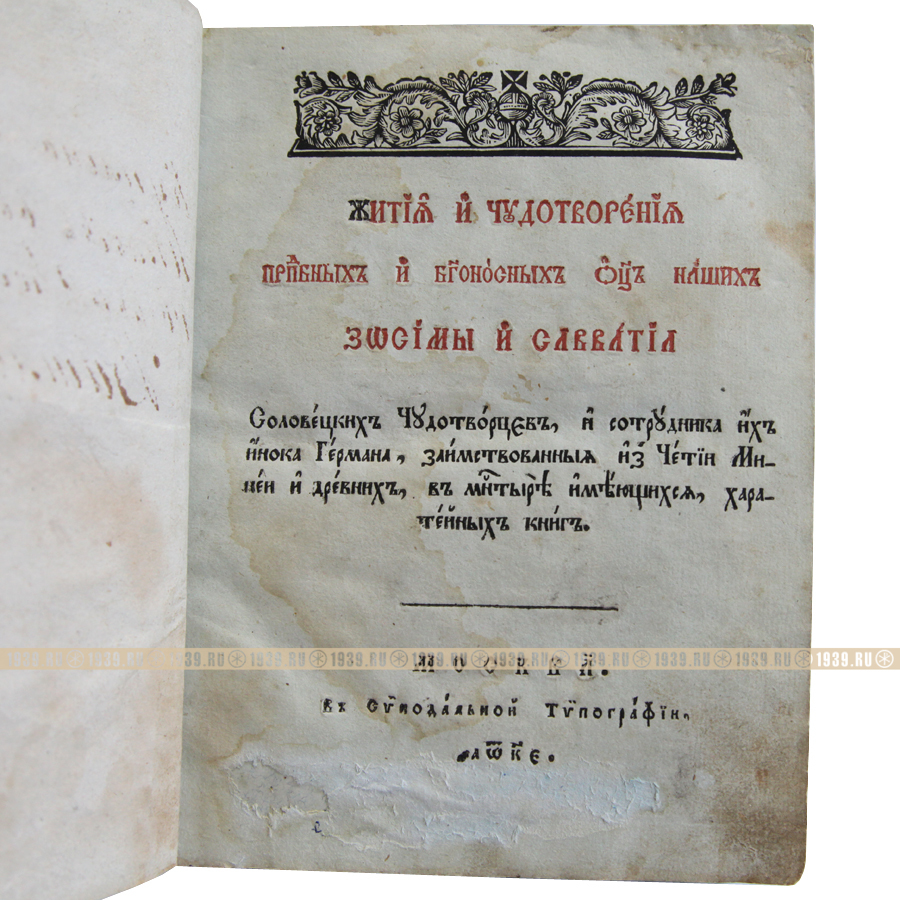 Житїѧ̑ и҆ чꙋдотворе́нїѧ
прⷣпбныхъ и҆ бг҃оно́сныхъ ѻ҆ц҃ъ на́шихъ
Зѡсі́мы и҆ Савва́тїа
Солове́цкихъ Чꙋдотво́рцєвъ, и҆ сотрꙋ́дника и҆́хъ
и҆́нока Ге́рмана, заи́мствованныѧ и҆з̾ Че́тїи Ми-
не́и и҆ дре́внихъ, въ мⷭ҇тырѣ̀ и҆мѣ́ющихсѧ, хара-
те́йныхъ кни́гъ.
В̾ Сѷнода́льной Тѷпогра́фїи,
҂аѿк҃є.
1939.RU 1939.RU 1939.RU 1939.RU 1939.RU 1939.RU